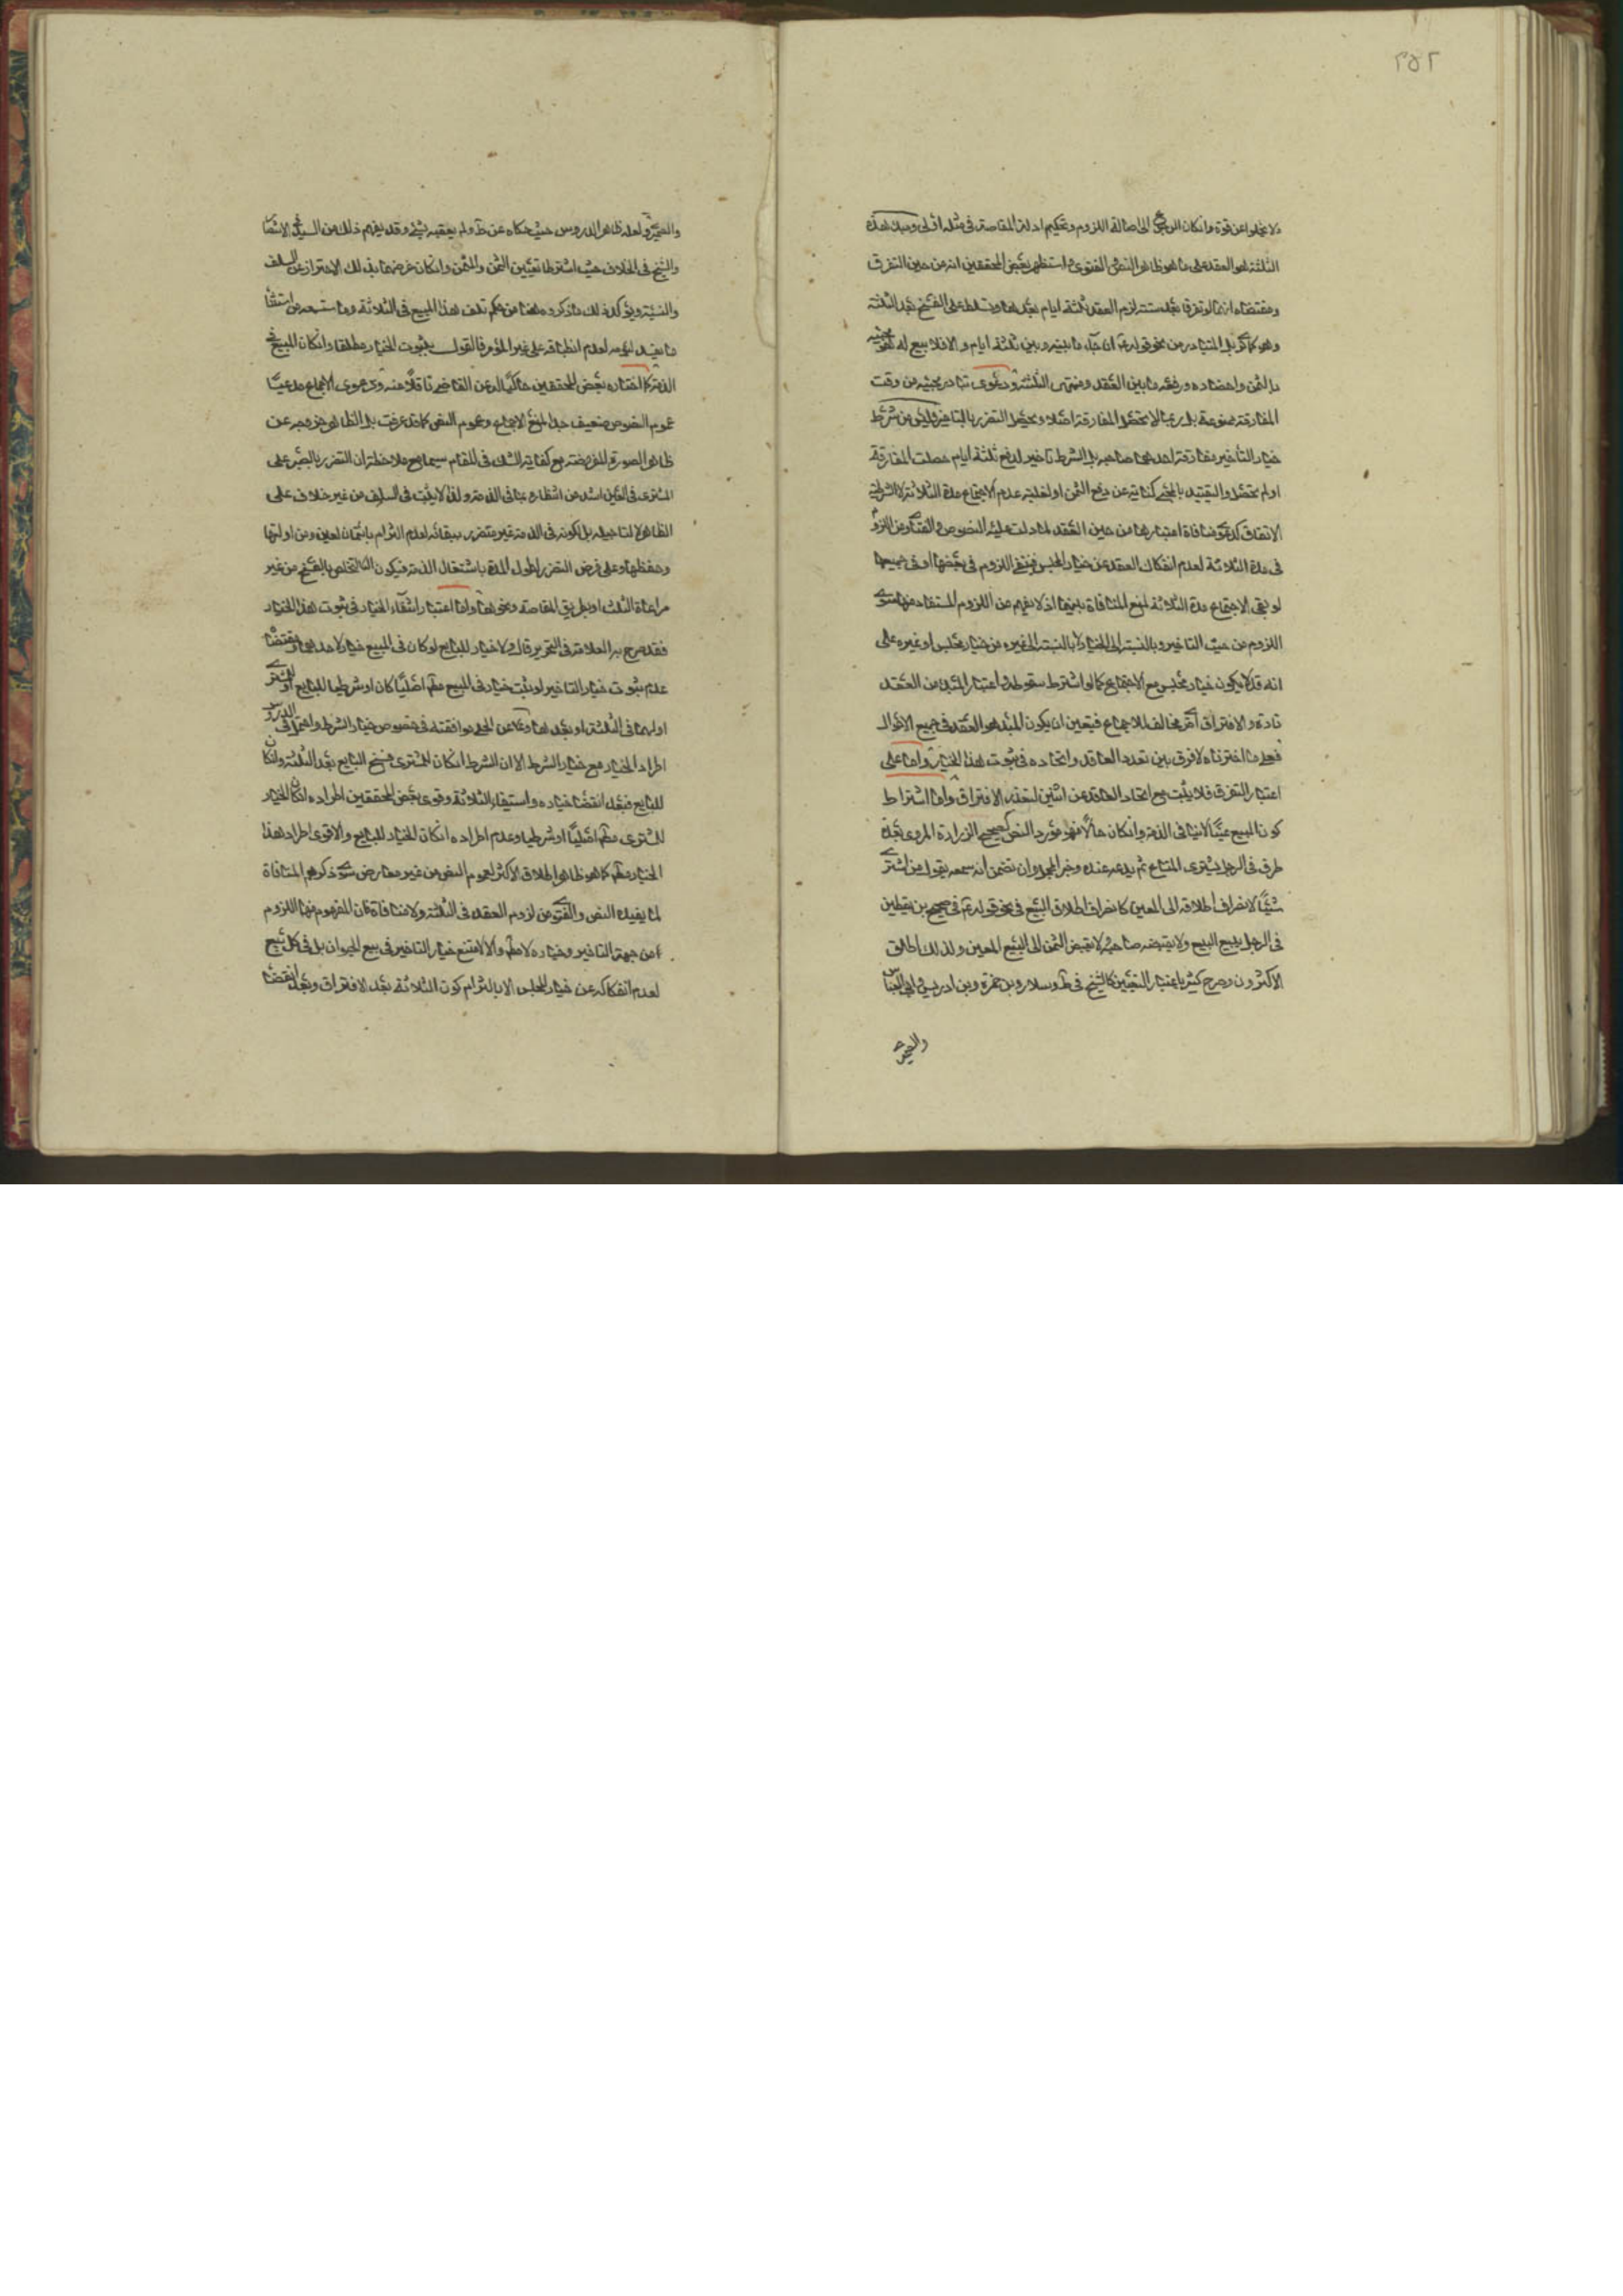 ٢٥٢
ولا يخلو عن قوة وان كان الرجوع الى اصالة اللزوم وتحكيم ادلة المقاصة في مثله اولى ومبدء هذه
الثلثة هو العقد على ما هو ظاهر النص والفتوى واستظهر بعض المحققين انه من حين التفرق
ومقتضاه انهما لو تفرقا بعد ستة لزم العقد ثلثة ايام بعدها ويتسلط على الفسخ بعد الثلثة
وهو كما ترى بل المتبادر من نحو قوله ع ان جاء ما بينه وبين ثلثة ايام والا فلا بيع له هو مجيئه
بالثمن واحضاره ودفعه ما بين العقد ومنتهى الثلثة ودعوى تبادر مجيئه من وقت
المفارقة ممنوعة بل ربما لا يحصل المفارقة اصلا ويحصل التضرر بالتاخير وليس من شرط
خيار التأخير مفارقة احدهما صاحبه بل الشرط تاخير الدفع ثلثة ايام حصلت المفارقة
اولم تحصل والتقييد بالمجيء كناية عن دفع الثمن او لغلبة عدم الاجتماع مدة الثلاثة لا لاشتراط
الافتراق كدعوى منافاة اعتبارها من حين العقد لما دلت عليه النصوص والفتاوى من اللزوم
في مدة الثلاثة لعدم انفكاك العقد عن خيار المجلس فينتفي اللزوم في بعضها او في جميعها
لو بقي الاجتماع مدة الثلاثة لمنع المنافاة بينهما اذ لا يفهم من اللزوم المستفاد منها سوى
اللزوم من حيث التاخير وبالنسبة الى الخيار لا بالنسبة الى غيره من خيار مجلس او غيره على
انه قد لا يكون خيار مجلس مع الاجتماع كما لو اشترط سقوطه واعتبار المبدء من العقد
تارة والافتراق اخرى مخالف للاجماع فيتعين ان يكون المبدء هو العقد في جميع الاحوال
فعلى ما اخترناه لا فرق بين تعدد العاقد واتحاده في ثبوت هذا الخيار واما على
اعتبار التفرق فلا يثبت مع اتحاد العاقد عن اثنين لتعذر الافتراق واما اشتراط
كون المبيع عينا لا دينا في الذمة وان كان حالا فهو مورد النص كصحيح زرارة المروي بعدة
طرق في الرجل يشتري المتاع ثم يدعه عنده وخبر المجد وان تضمن انه سمعه يقول من اشترى
شيئا لانصراف اطلاقه الى المعين كانصراف اطلاق البيع في نحو قوله ع في صحيح بن يقطين
في الرجل يبيع البيع ولا يقبضه صاحبه ولا يقبض الثمن الى البيع المعين ولذلك اطلق
الاكثرون وصرح كثير باعتبار التعيين كالشيخ في ط وسلار وبن حمزة وبن ادريس وابي العباس
والصيمري
والصيمري ولعله ظاهر الدروس حيث حكاه عن ط ولم يعقبه بشيء وقد يفهم ذلك من السيد في الانتصار
والشيخ في الخلاف حيث اشترطا تعيين الثمن والمثمن وان كان غرضهما بذلك الاحتراز عن السلف
والنسيئة ويؤكد ذلك ما ذكروه هنا من حكم تلف هذا المبيع في الثلاثة وما ستسمعه من استثناء
ما يفسد ليومه لعدم انطباقه على غير المؤمر فالقول بثبوت الخيار مطلقا وان كان المبيع في
الذمة كما اختاره بعض المحققين حاكيا له عن القاضي ناقلا منه دعوى الاجماع مدعيا
عموم النصوص ضعيف جدا لمنع الاجماع وعموم النص كما قد عرفت بل الظاهر خروجه عن
ظاهر الصورة المفروضة مع كفاية الشك في المقام سيما مع ملاحظة ان التضرر بالصبر على
المشتري في العين اشد من انتظاره بما في الذمة ولذا لا يثبت في السلف من غير خلاف على
الظاهر لا لتاجيله بل لكونه في الذمة غير متضرر ببقائه لعدم التزام بائتمان لعين ومن اولتها
وحفظها وعلى فرض التضرر لطول المدة باشتغال الذمة فيكون التخلص بالفسخ من غير
مراعاة الثلث او بطريق المقاصة ونحوها واما اعتبار انتفاء الخيار في ثبوت هذا الخيار
فقد صرح به العلامة في التحرير قال ولا خيار للبايع لو كان في المبيع خيار لاحدهما ومقتضاه
عدم ثبوت خيار التاخير لو ثبت خيار في المبيع مطلقا اصليا كان او شرطيا للبايع او للمشتري
او لهما في الثلثة او بعدها وعن الحلي موافقته في خصوص خيار الشرط واحتمل في الدروس
اطراد الخيار مع خيار الشرط الا ان الشرط ان كان للمشتري فسخ البايع بعد الثلثة وان كان
للبايع فبعد انقضاء خياره واستيفاء الثلاثة وقوى بعض المحققين اطراده ان كان الخيار
للمشتري مطلقا اصليا او شرطيا وعدم اطراده ان كان الخيار للبايع والاقوى اطراد هذا
الخيار مطلقا كما هو ظاهر اطلاق الاكثر لعموم النص من غير معارض سوى ذكرهم المنافاة
لما يفيده النص والفتوى من لزوم العقد في الثلثة ولا منافاة فان المفهوم منها اللزوم
من جهة التاخير وخياره لا مطلقا والا لامتنع خيار التاخير في بيع الحيوان بل في كل بيع
لعدم انفكاكه عن خيار المجلس الا بالتزام كون الثلاثة بعد الافتراق وبعد انقضاء